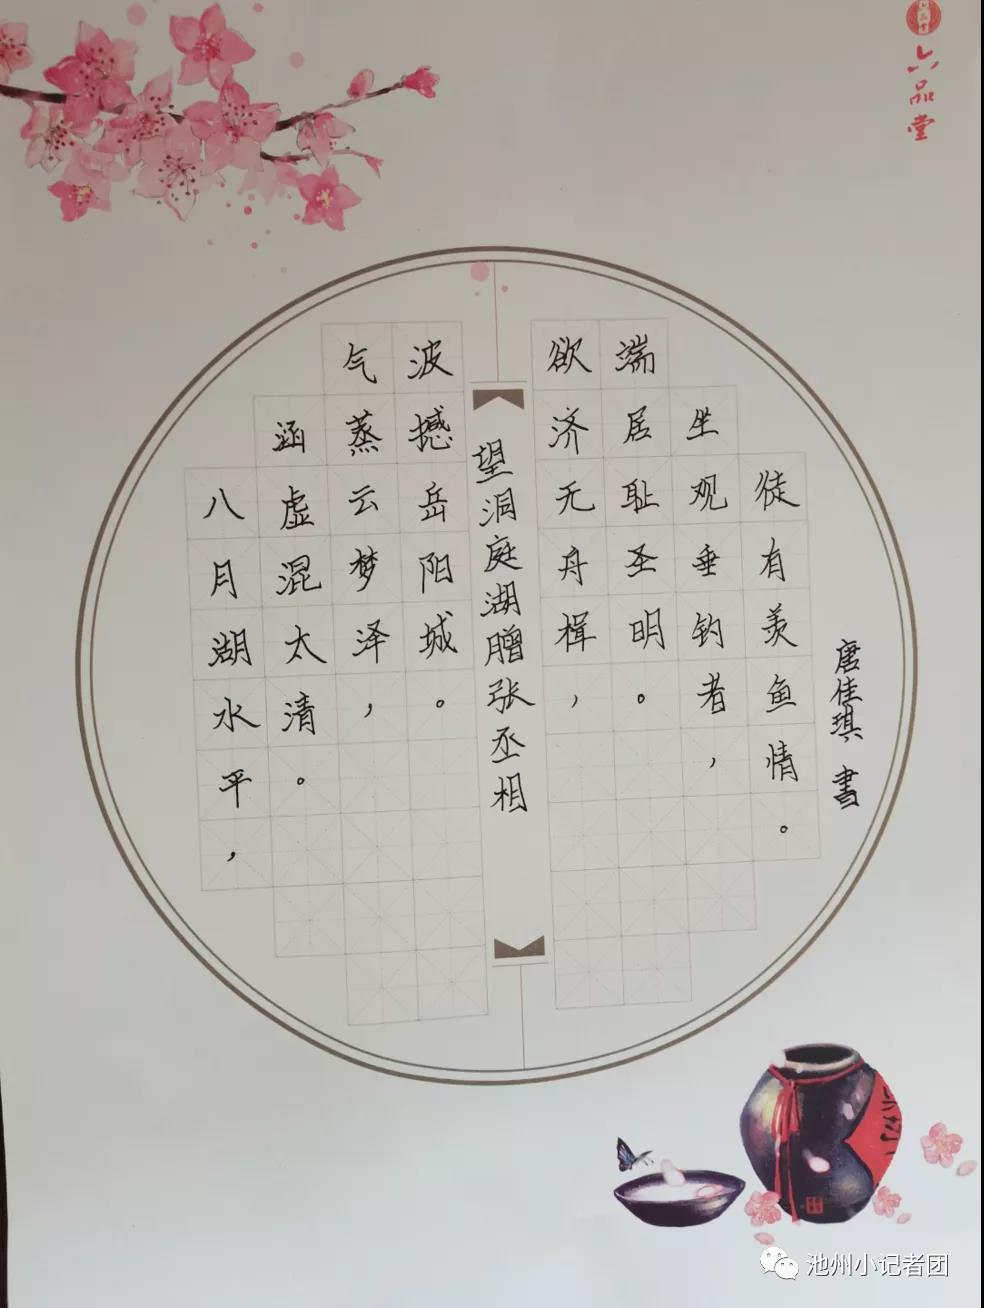 六品堂
八月湖水平，
涵虚混太清。
气蒸云梦泽，
波撼岳阳城。
望洞庭湖赠张丞相
欲济无舟楫，
端居耻圣明。
坐观垂钓者，
徒有羡鱼情。
唐佳琪 書
池州小记者团